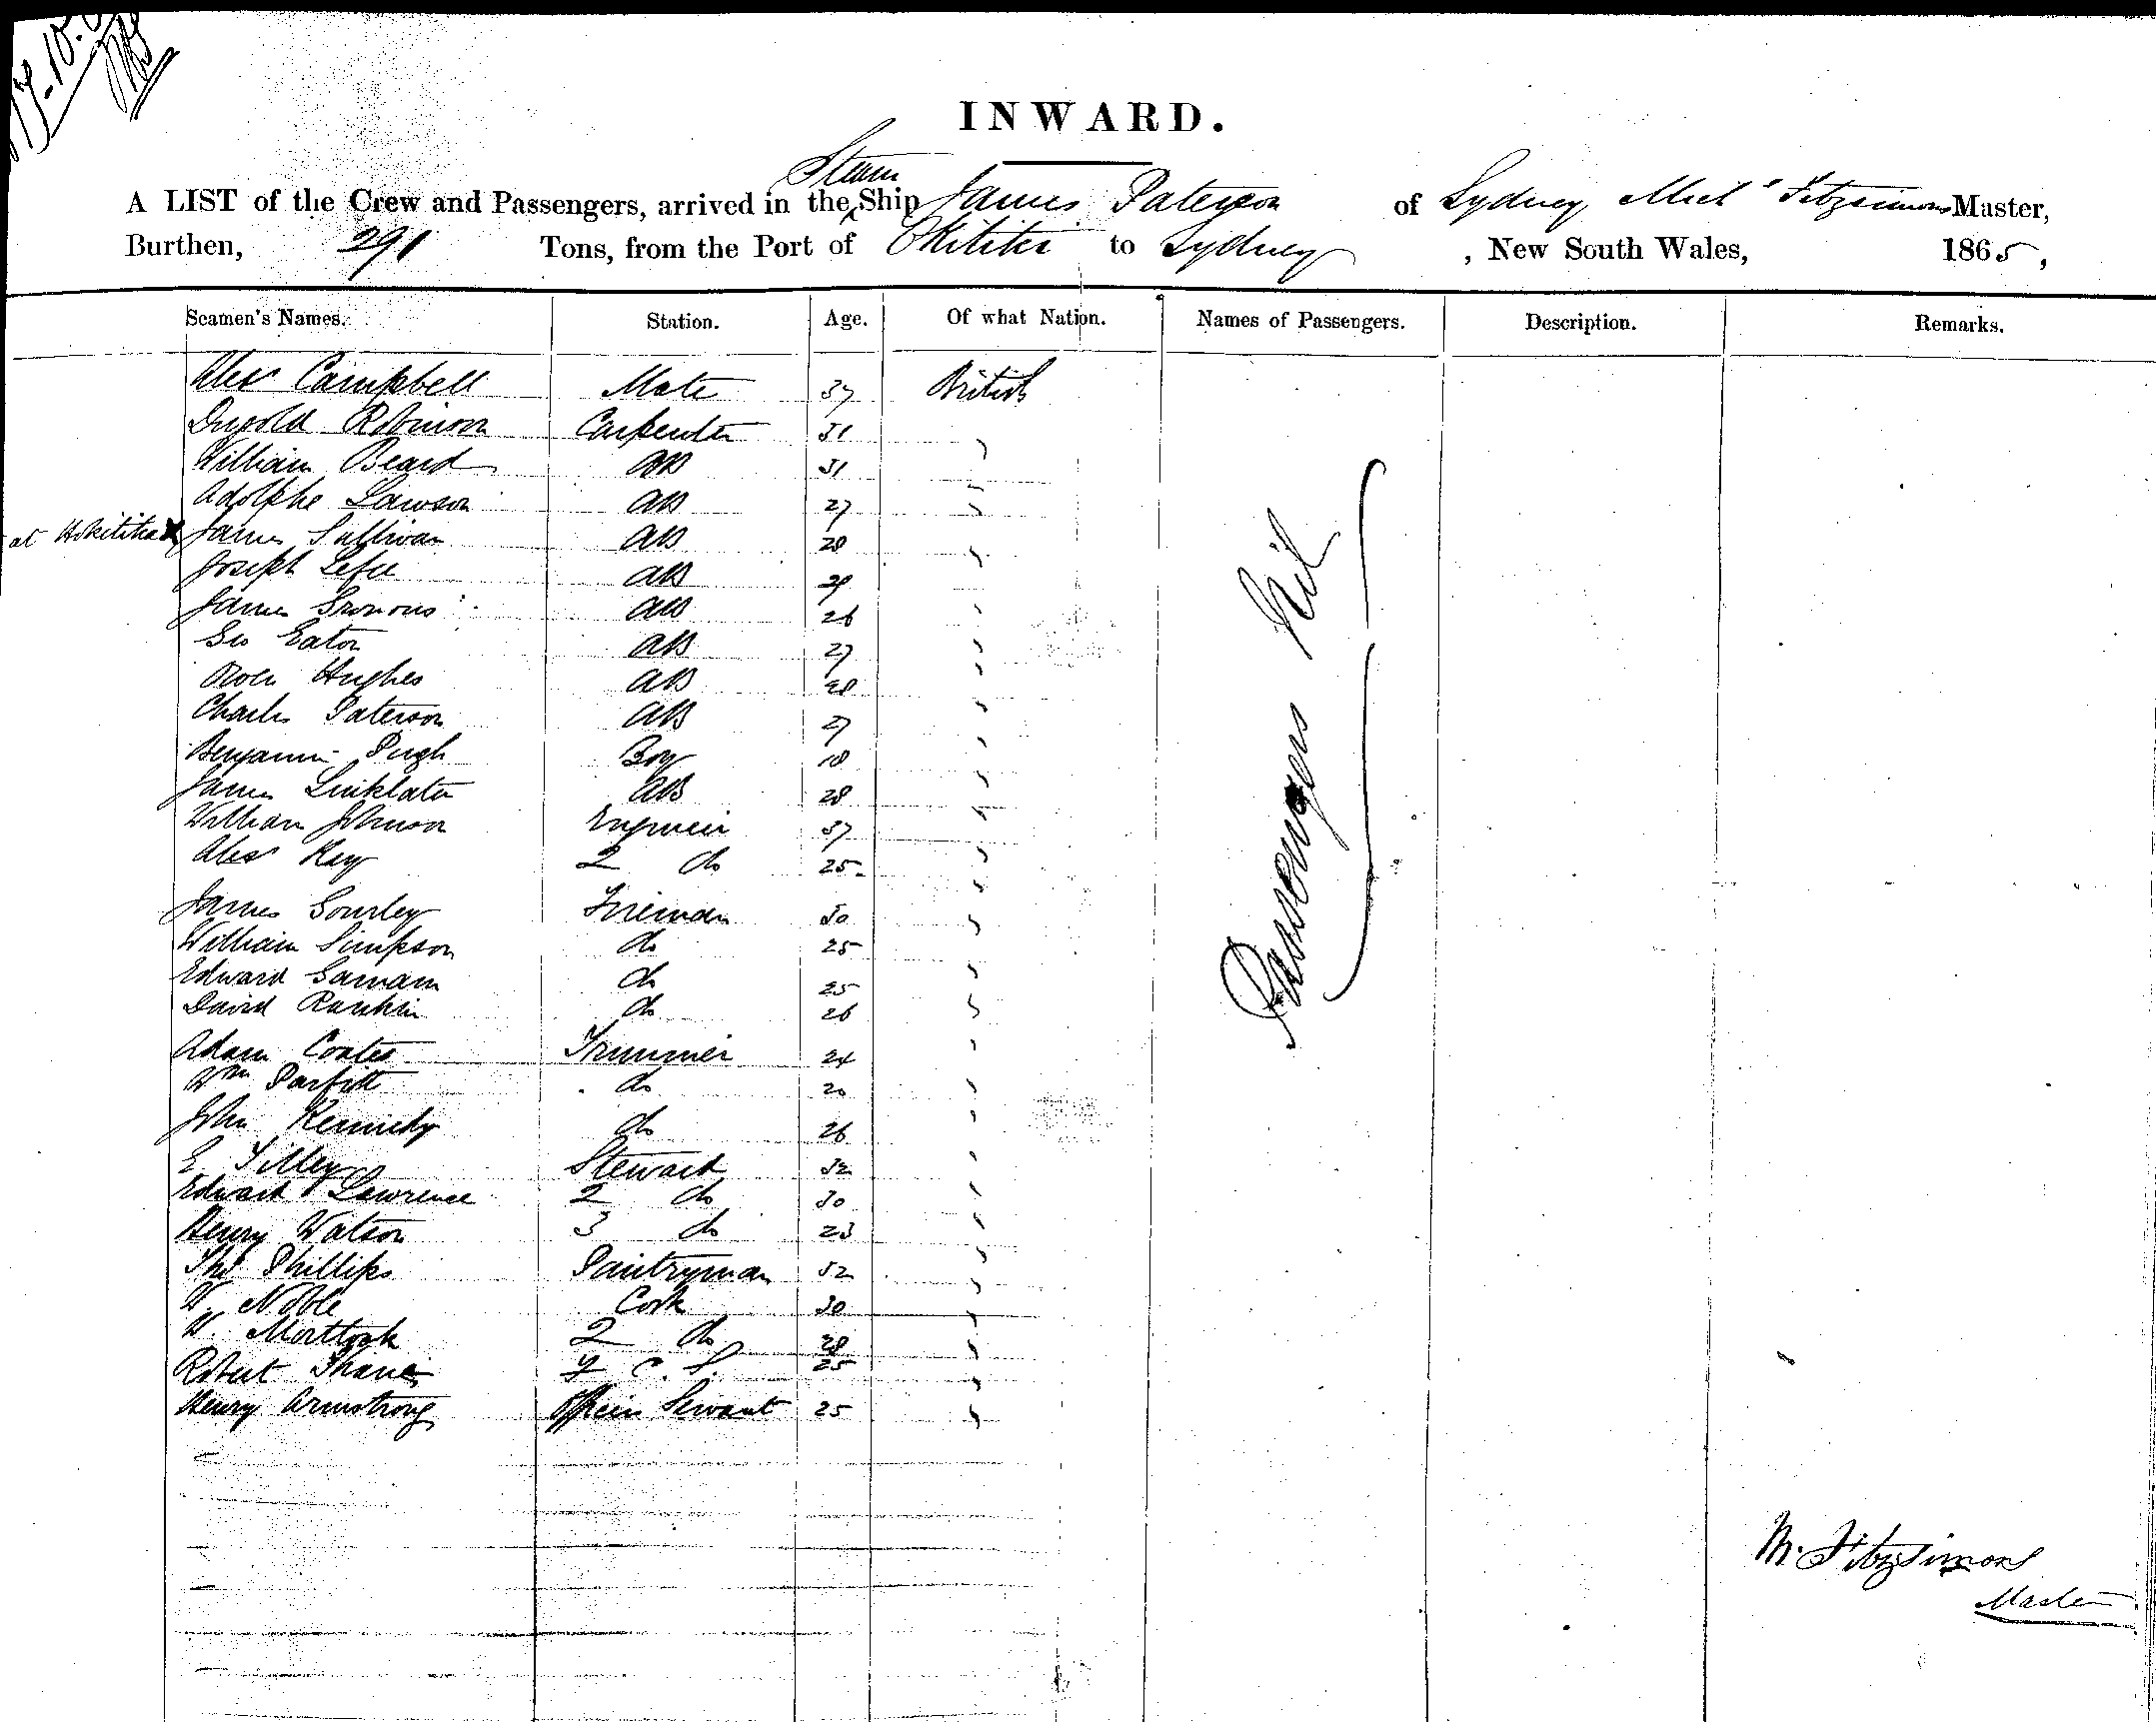 17-10-
INWARD.
Steam
A LIST of the Crew and Passengers, arrived in the Ship James Paterson of Sydney Mich Fitzsimons Master,
Burthen, 291 Tons, from the Port of Okititi to Sydney, New South Wales, 1865,
Seamen's Names. Station. Age. Of what Nation. Names of Passengers. Description. Remarks.
Alexr Campbell Mate 37 British
Robinson Carpenter 31 "
William Beard AB 31 "
Adolphe Lawson AB 27 "
at Hokitika X James Sullivan AB 28 "
Joseph AB "
James AB 26 "
Geo Eaton AB 27 "
Hughes AB 28 "
Charles Paterson AB 27 "
Benjamin Pugh Boy 18 "
James Linklater AB 28 "
William Johnson Engineer 37 "
Alexr Key 2 do 25 "
James Gourley Fireman 30 "
William Simpson do 25 "
Edward do 25 "
David Rankin do 26 "
Adam Coates Trimmer 24 "
Wm Parfitt do 20 "
John Kennedy do 26 "
E Tilley Steward 32 "
Edward Lawrence 2 do 30 "
Henry Watson 3 do 23 "
Thos Phillips Pantryman 32 "
W. Noble Cook 30 "
W. Mortlock 2 do 28 "
Robert 25 "
Henry Armstrong Officers Servant 25 "
Passengers Nil
M. Fitzsimons
Master